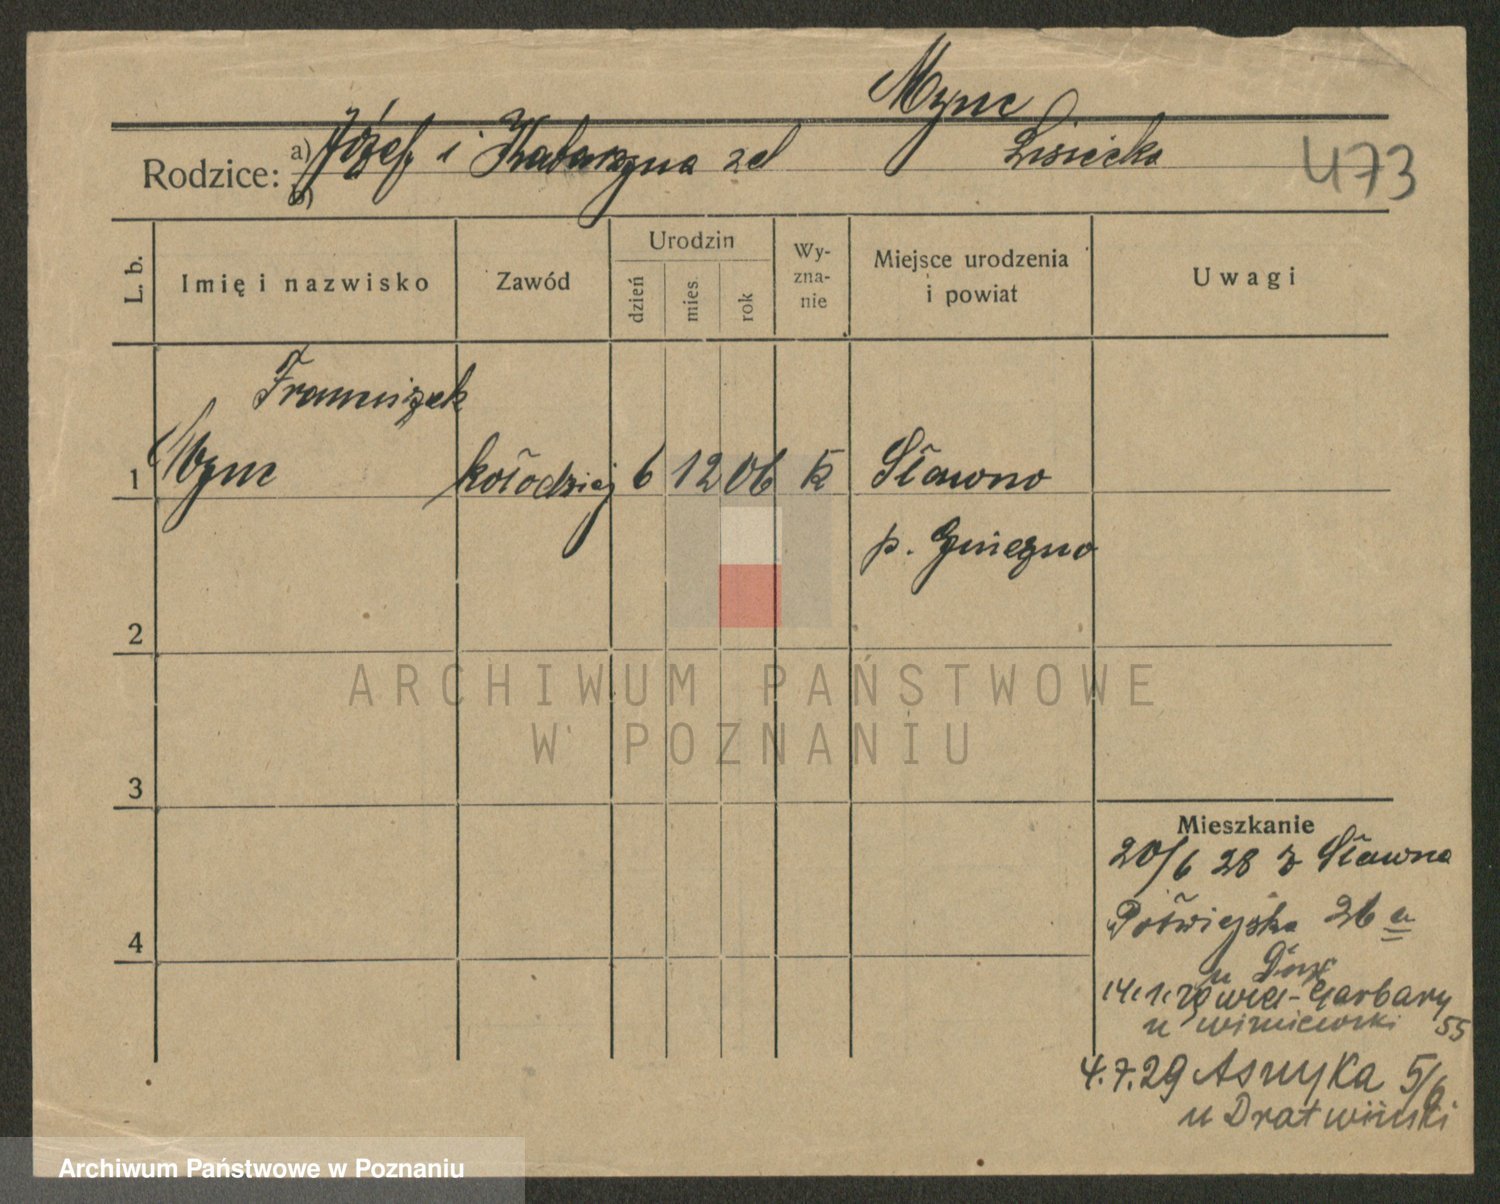 Mync
Rodzice: a) Józef i Katarzyna zd Lisiecka
b)
473
L. b.
Imię i nazwisko
Zawód
Urodzin
dzień
mies.
rok
Wy-
zna-
nie
Miejsce urodzenia
i powiat
Uwagi
Franciszek
1 Mync kołodziej 6 12 06 k Sławno
p. Gniezno
2
3
4
ARCHIWUM PAŃSTWOWE
W POZNANIU
Mieszkanie
20/6 28 z Sławna
Póświejska 26 a
u
14.1.29 Wiel-Garbary
u Wiśniewski 55
4.7.29 Asnyka 5/6
u Dratwiński
Archiwum Państwowe w Poznaniu